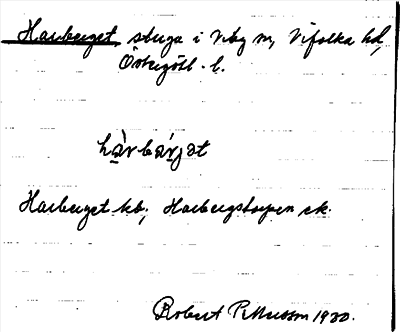 Harberget stuga i Viby sn, Vifolka hd,
Östergötl. l.
hàrbárjat
Harberget kb; Harbergstorpen sk.
Robert Pettersson 1930.